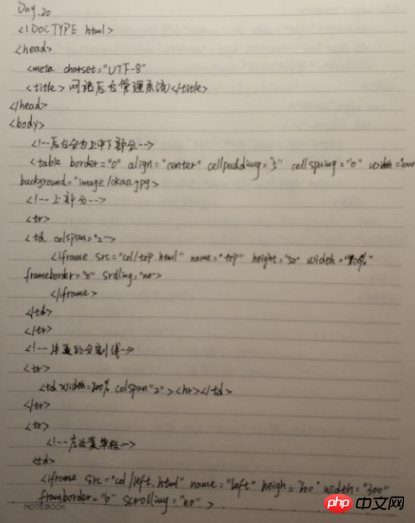 Day.20
<!DOCTYPE html>
<head>
<meta charset="UTF-8"
<title>问谱后台管理系统</title>
</head>
<body>
<!--后台分为上中下部分-->
<table border="0" align="center" cellpadding="5" cellspacing="0" width=
background="image/
<!--上部分-->
<tr>
<td colspan="2">
<iframe src="col/top.html" name="top" height="50" width=
frameborder="0"
</iframe>
</td>
</tr>
<!--
<tr>
<td width=200% colspan="2"><hr></td>
</tr>
<tr>
<!--左边菜单栏-->
<td>
<iframe src="col/left.html" name="left" heigh="700" width="300"
scrolling="no">
NOTEBOOK
php 中文网